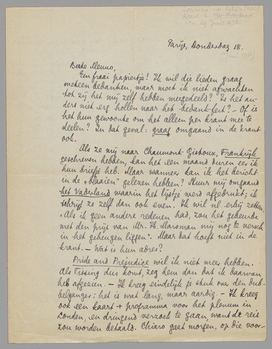 Parijs, Donderdag 18.
Beste Menno,
Een fraai papiertje! Ik wil die lieden graag
meteen bedanken, maar moet ik niet afwachten
tot zij het mij zelf hebben meegedeeld? Is het an-
ders niet erg hollen naar het
hun gewoonte om het alleen per krant mee te
deelen? In dat geval: graag omgaand in de krant
ook.
Als ze mij naar Chaumont-Gistoux, Frankrijk,
geschreven hebben, kan het een maand duren eer ik
hun briefje heb. Maar wanneer kan ik het bericht
in de bladen gelezen hebben? Stuur mij omgaand
het Vaderland waarin het lijstje met
schrijf ze zelf dan ook even. Ik wil nl. erbij zetten
Als ik geen andere redenen had, zou het gebeurde
met den prijs van Mr. H. Marsman mij nog te versch
in het geheugen liggen. Maar dat hoeft niet in de
krant. – Wat is hun adres?
Pride and Prejudice wil ik niet meer hebben.
Als Tissing die koos, zeg hem dan dat ik daarvan
heb afgezien. – Ik kreeg eindelijk je stuk over den
het is wat lang, maar aardig. – Ik kreeg
ook een kaart + programma voor het plenum in
Londen, en dringend verzoek te gaan, want de reis
zou worden betaald. Chiaro geet morgen, op die voor-